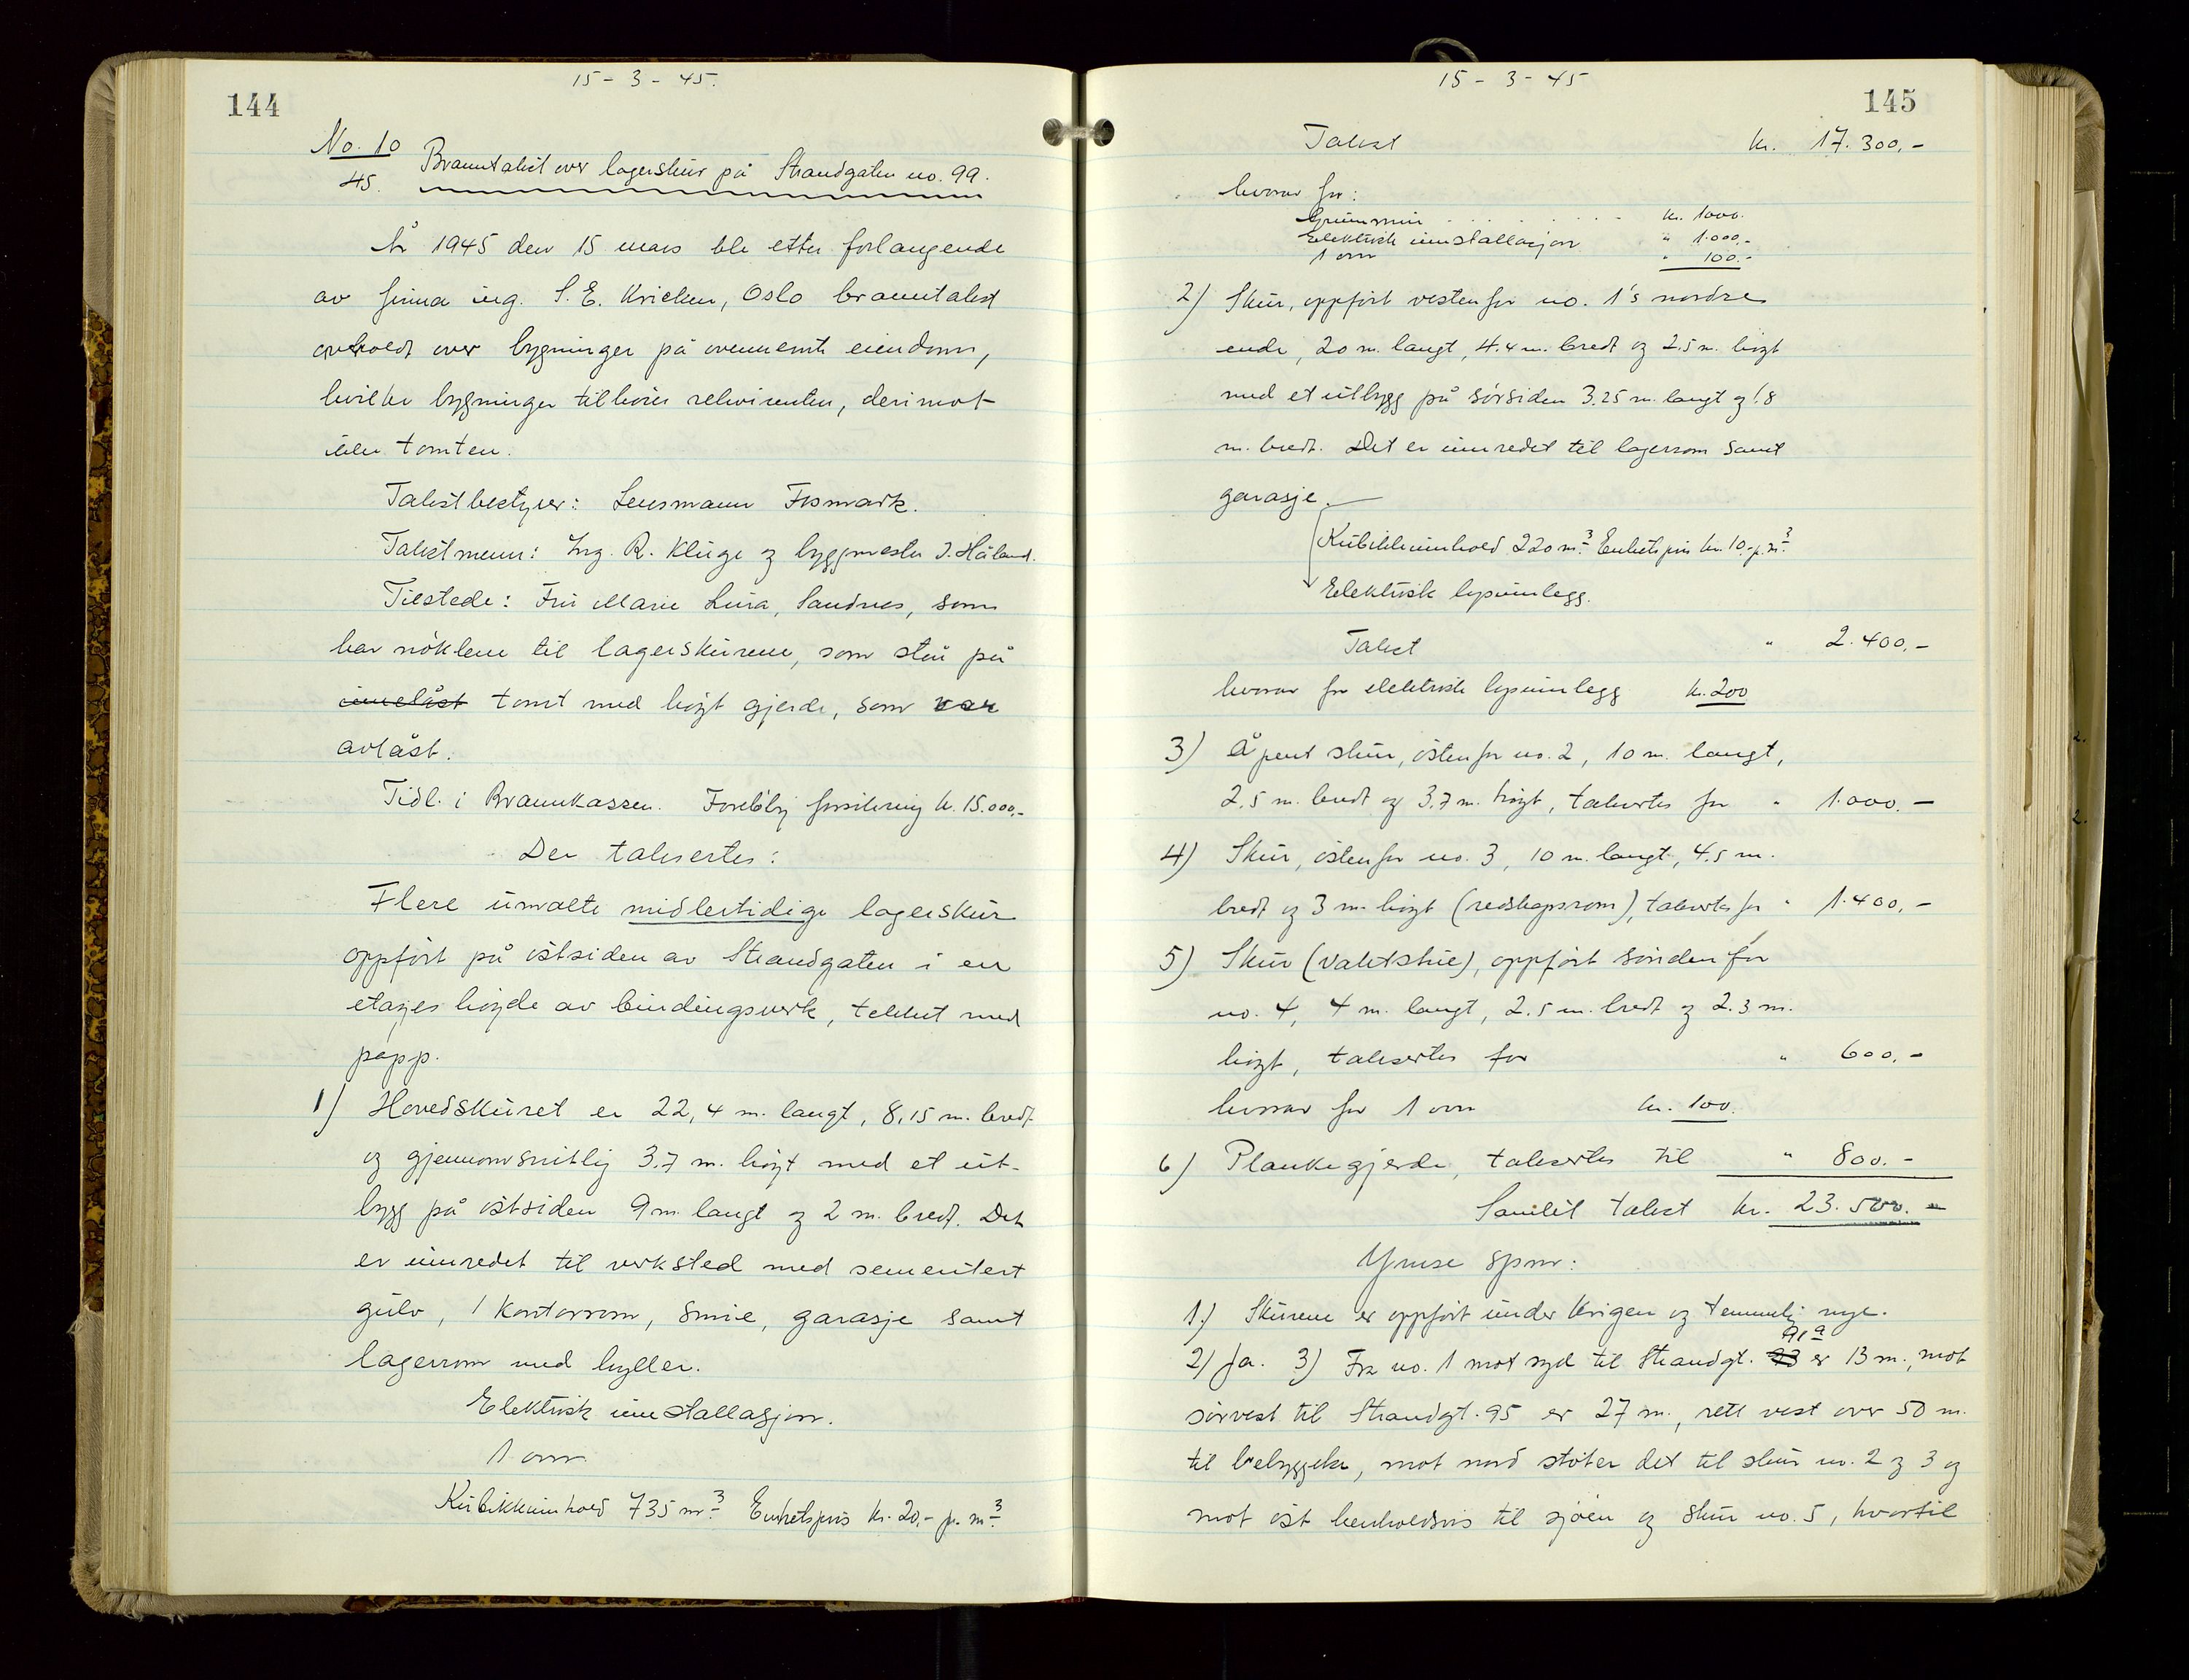 144
15 - 3 - 45.
No. 10
45.
Branntakst over lagerskur på Strandgaten no. 99.
År 1945 den 15 mars ble etter forlangende
av firma ing. S. E. Kricken, Oslo branntakst
avholdt over bygninger på ovennemte eiendom,
hvilke bygninger tilhører rekvirenten, derimot
ikke tomten.
Takstbestyrer: Lensmann Fosmark.
Takstmenn: Ing. R. Kluge og byggmester J. Håland.
Tilstede: Fru Marie Lura, Sandnes, som
har nøklene til lagerskurene, som står på
inelåst tomt med høgt gjerde, som var
avlåst.
Tidl. i Brannkassen. Foreløbig forsikring kr. 15.000,-
Der taksertes:
Flere umalte midlertidige lagerskur
oppført på østsiden av Strandgaten i en
etasjes høgde av bindingsverk, tekket med
papp.
1) Hovedskuret er 22,4 m. langt, 8,15 m. bredt
og gjennomsnitlig 3.7 m. høgt med et ut-
bygg på østsiden 9 m. langt og 2 m. bredt. Det
er innredet til verksted med sementert
gulv, 1 kontorrom, smie, garasje samt
lagerrom med hyller.
Elektrisk installasjon.
1 ovn
Kubikkinnhold 735 m³. Enhetspris kr. 20,- pr. m³.
15 - 3 - 45
145
Takst kr. 17.300,-
hvorav for:
Grunnmur . . . . . . . kr. 1000.
Elektrisk innstallasjon " 1.000,-
1 ovn " 100.-
2) Skur, oppført vestenfor no. 1's nordre
ende, 20 m. langt, 4.4 m. bredt og 2.5 m. høgt
med et utbygg på sørsiden 3.25 m. langt og 1.8
m. bredt. Det er innredet til lagerrom samt
garasje.
Kubikkinnhold 220 m³. Enhetspris kr. 10,- p. m³.
Elektrisk lysinnlegg.
Takst " 2.400,-
hvorav for elektrisk lysinnlegg kr. 200
3) Åpent skur, østenfor no. 2, 10 m. langt,
2,5 m. bredt og 3,7 m. høgt, takseres for " 1.000.-
4) Skur, østenfor no. 3, 10 m. langt, 4.5 m.
bredt og 3 m. høgt (redskapsrom), takseres for " 1.400,-
5) Skur (vaktstue), oppført sønden for
no. 4, 4 m. langt, 2.5 m. bredt og 2.3 m.
høgt, taksertes for " 600,-
hvorav for 1 ovn kr. 100.
6) Plankegjerde, taksertes til " 800.-
Samlet takst kr. 23.500.-
Ymse spm:
1.) Skurene er oppført under krigen og temmelig nye.
2) Ja. 3) Fra no. 1 mot syd til Strandgt. 93 91ª er 13 m., mot
sørvest til Strandgt. 95 er 27 m., rett vest over 50 m.
til bebyggelse, mot nord støter det til skur no. 2 og 3 og
mot øst henholdsvis til sjøen og skur no. 5, hvortil